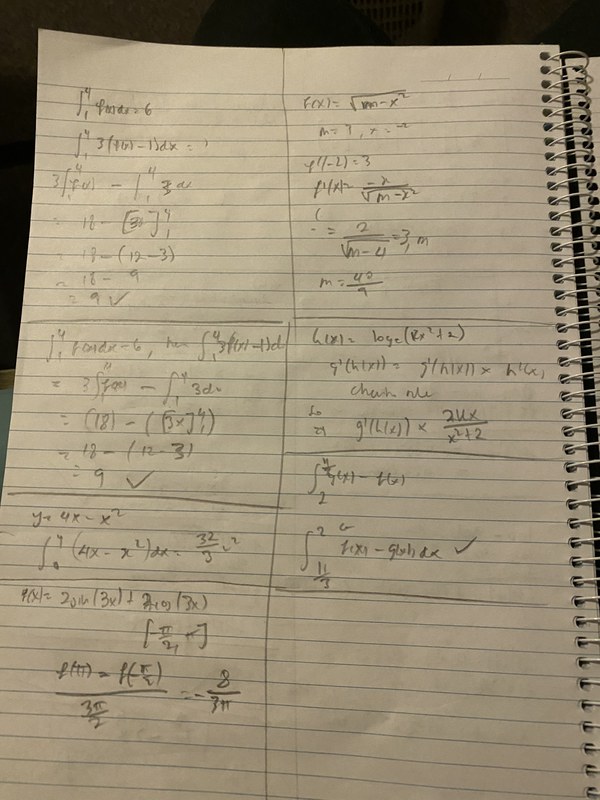 ∫₁⁴ f(x)dx = 6
∫₁⁴ 3(f(x) − 1)dx = ?
3∫₁⁴ f(x) − ∫₁⁴ 3 dx
= 18 − [3x]₁⁴
= 18 − (12 − 3)
= 18 − 9
= 9 ✓
∫₁⁴ f(x)dx = 6, then ∫₁⁴ 3(f(x) − 1)d
= 3∫₁⁴ f(x) − ∫₁⁴ 3dx
= (18) − ([3x]₁⁴)
= 18 − (12 − 3)
= 9 ✓
y = 4x − x²
∫₀⁴ (4x − x²)dx = 32/3 u²
f(x) = 2sin(3x) + 2cos(3x)
[−π/2, π]
(f(π) − f(−π/2)) / (3π/2) = −8/3π
f(x) = √(m − x²)
m = ?, x = −2
f'(−2) = 3
f'(x) = −x/√(m − x²)
∴ = 2/√(m − 4) = 3, m
m = 40/9
h(x) = logₑ(kx² + 2)
g'(h(x)) = g'(h(x)) × h'(x)
chain rule
so
⇒ g'(h(x)) × 2kx/(x² + 2)
g(x) − f(x)
f(x) − g(x) dx ✓